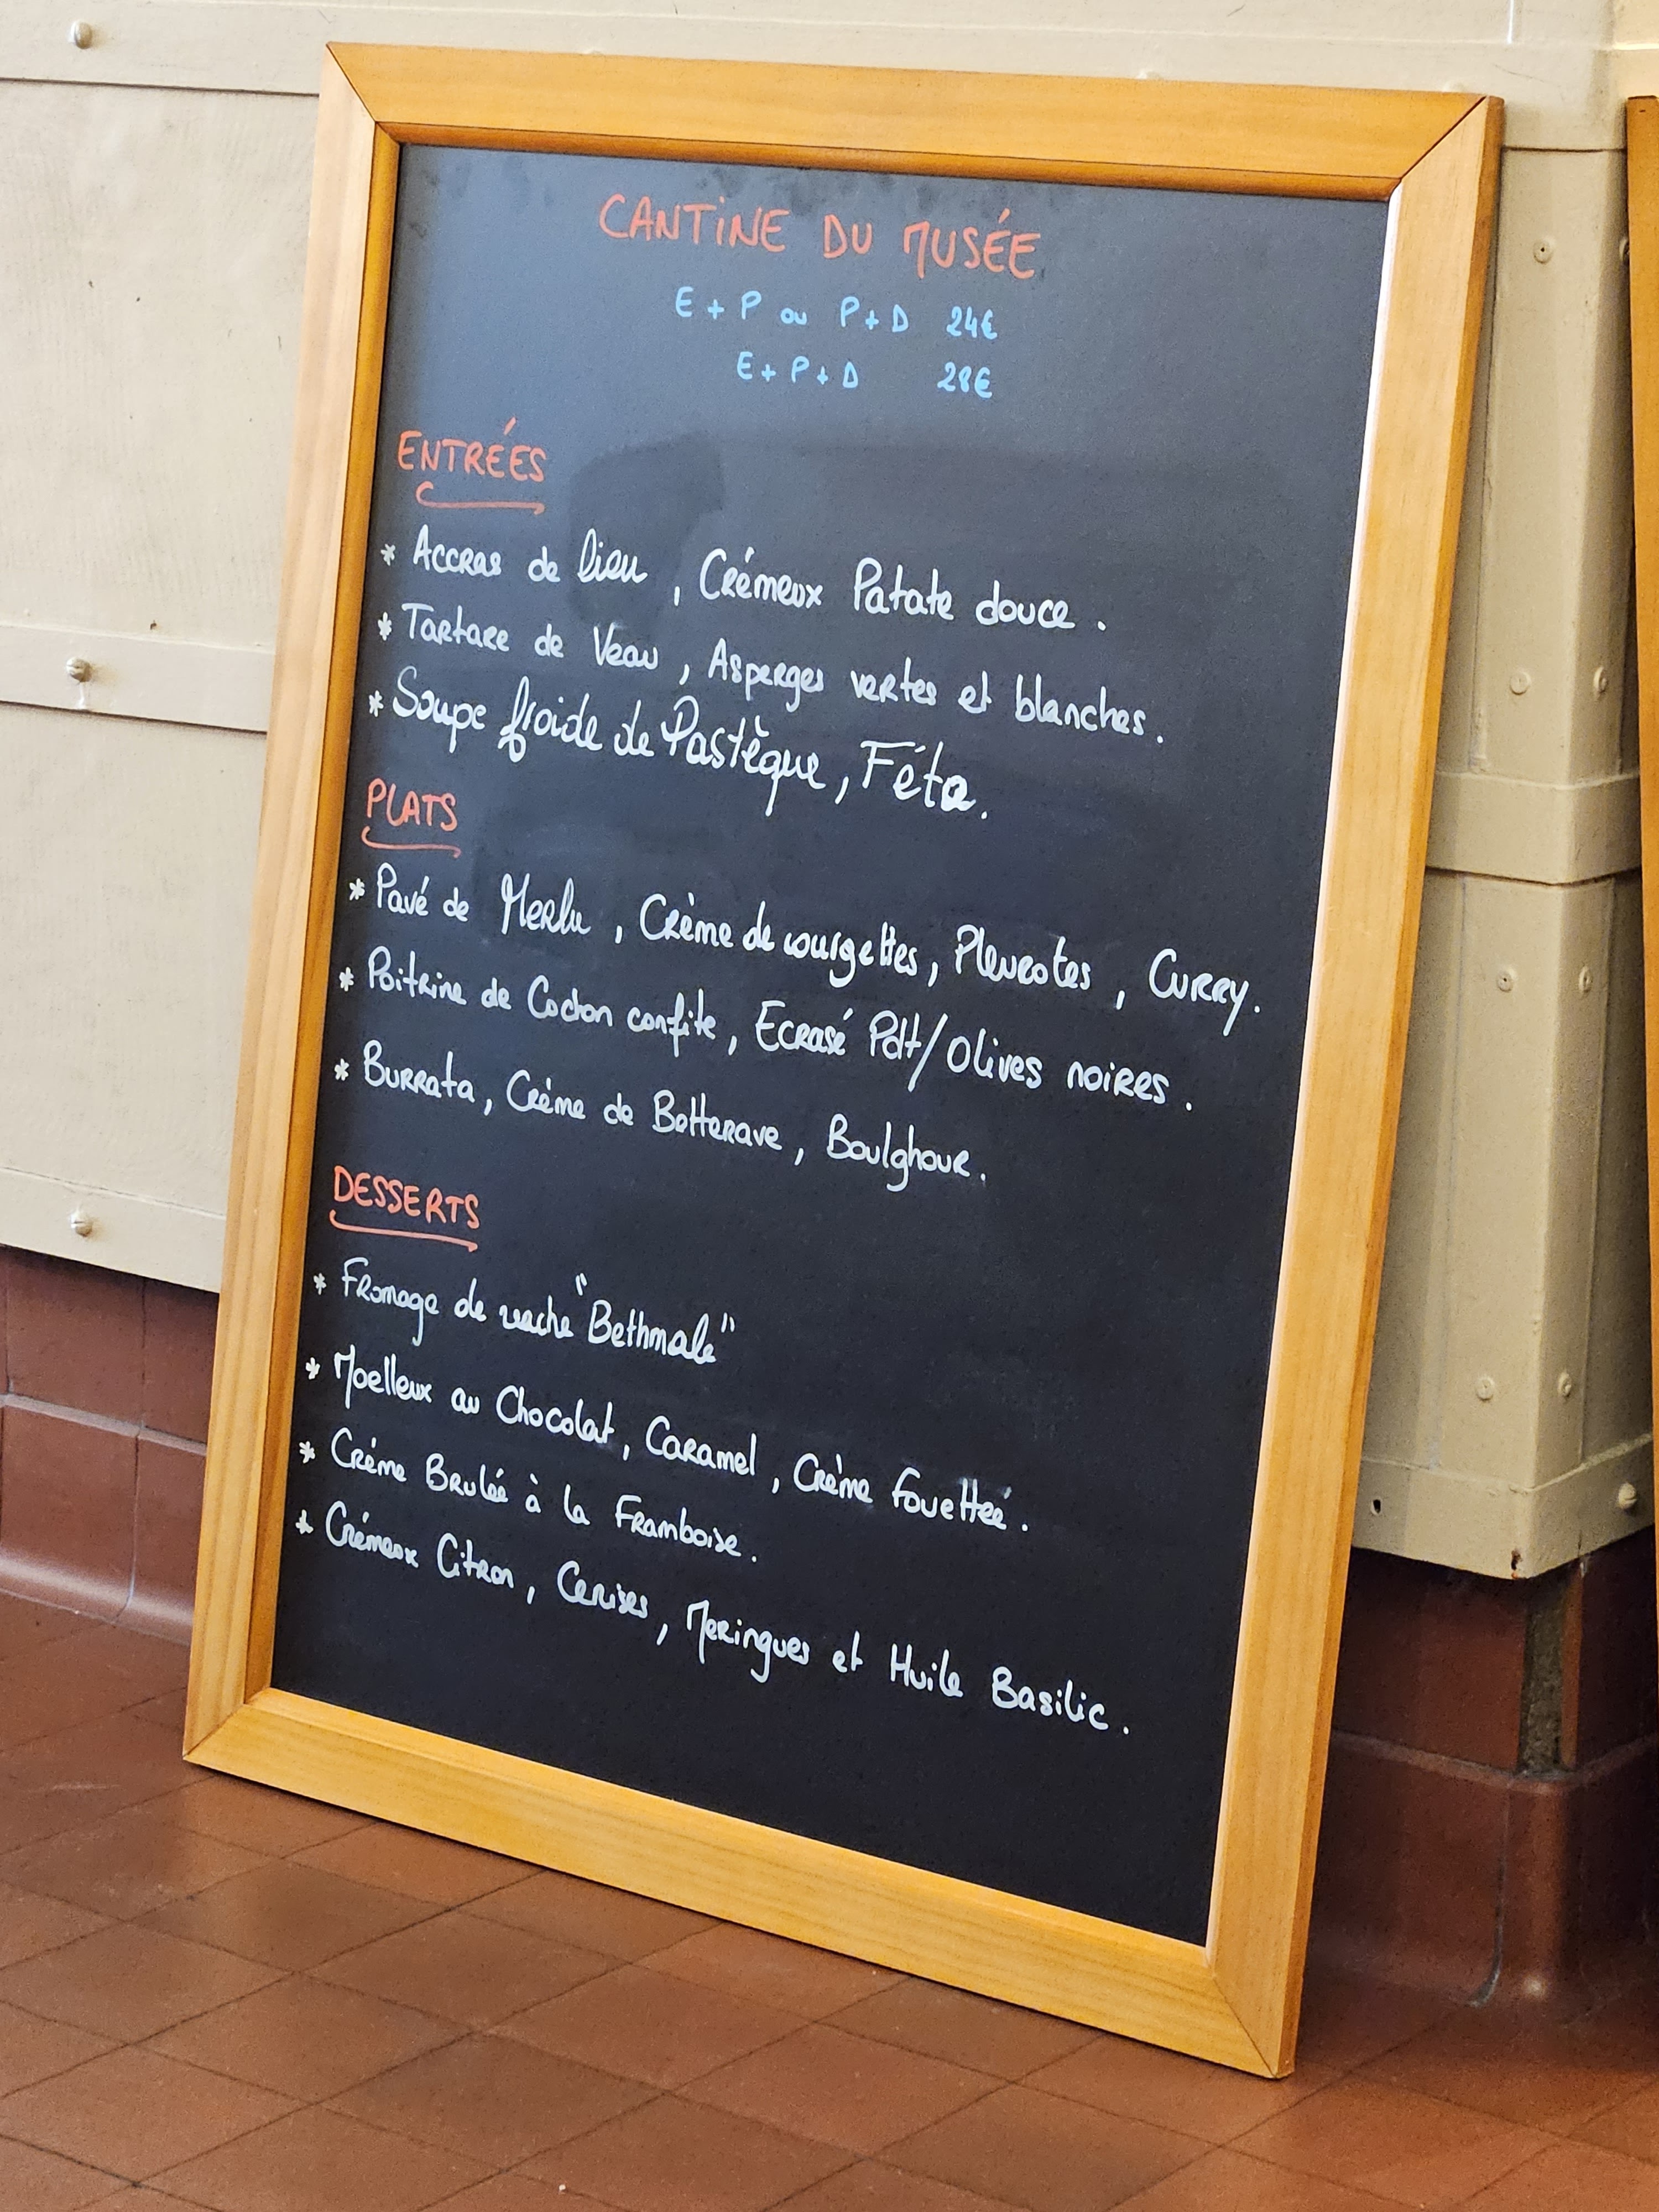 CANTINE DU MUSÉE
E + P ou P + D 24€
E + P + D 28€
ENTRÉES
* Accras de lieu, Crémeux Patate douce.
* Tartare de Veau, Asperges vertes et blanches.
* Soupe froide de Pastèque, Féta.
PLATS
* Pavé de Merlu, Crème de courgettes, Pleurotes, Curry.
* Poitrine de Cochon confite, Ecrasé Pdt/Olives noires.
* Burrata, Crème de Betterave, Boulghour.
DESSERTS
* Fromage de vache "Bethmale"
* Moelleux au Chocolat, Caramel, Crème fouetteé.
* Crème Brulée à la Framboise.
* Crémeux Citron, Cerises, Meringues et Huile Basilic.